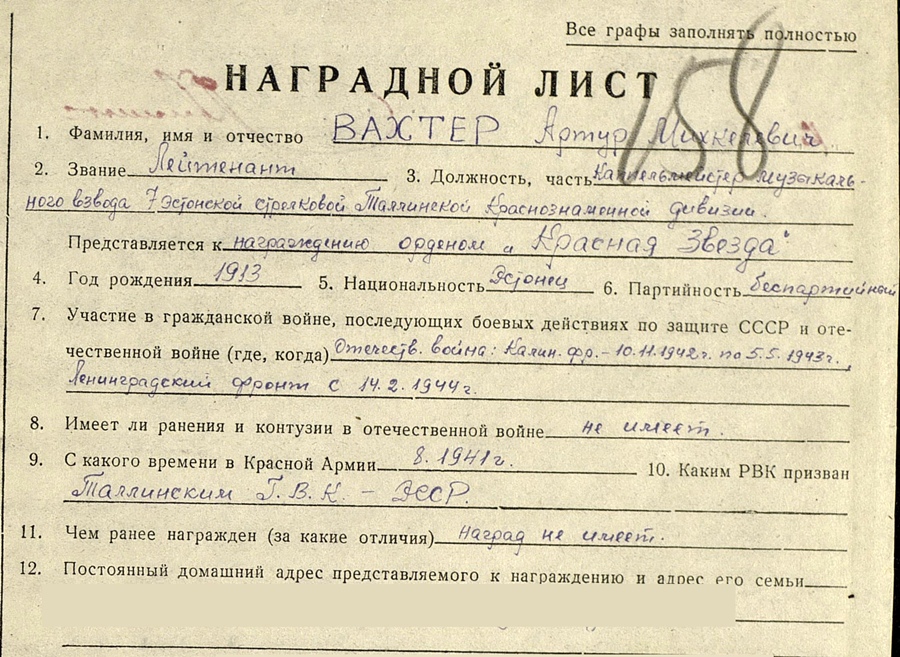 Все графы заполнять полностью
158
НАГРАДНОЙ ЛИСТ
1. Фамилия, имя и отчество ВАХТЕР Артур Михкелевич
2. Звание Лейтенант 3. Должность, часть Капельмейстер музыкаль-
ного взвода 7 Эстонской стрелковой Таллинской Краснознаменной дивизии.
Представляется к награждению орденом „Красная Звезда"
4. Год рождения 1913 5. Национальность Эстонец 6. Партийность беспартийный
7. Участие в гражданской войне, последующих боевых действиях по защите СССР и оте-
чественной войне (где, когда) Отечеств. война: Калин. фр. - 10.11.1942г. по 5.5.1943г.,
Ленинградский фронт с 14.2.1944г.
8. Имеет ли ранения и контузии в отечественной войне не имеет.
9. С какого времени в Красной Армии 8.1941г. 10. Каким РВК призван
Таллинским Г.В.К. - ЭССР.
11. Чем ранее награжден (за какие отличия) наград не имеет.
12. Постоянный домашний адрес представляемого к награждению и адрес его семьи